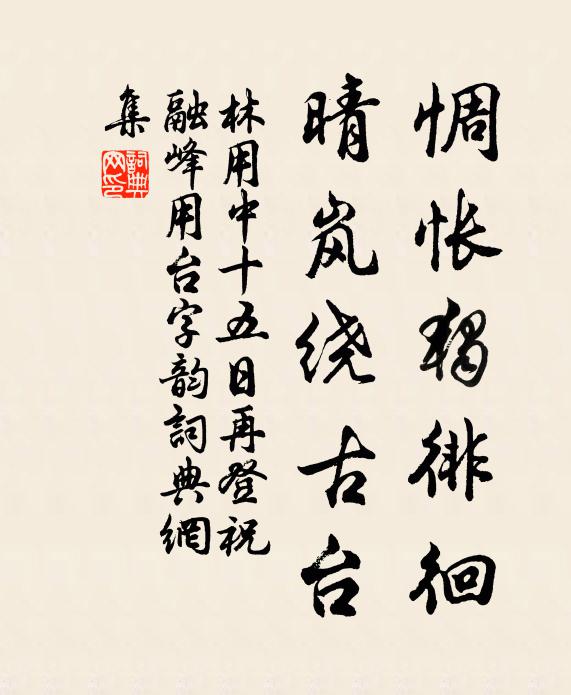 惆怅独徘徊
晴岚绕古台
林用中十五日再登祝
融峰用台字韵詞典網
集
詞典
网印